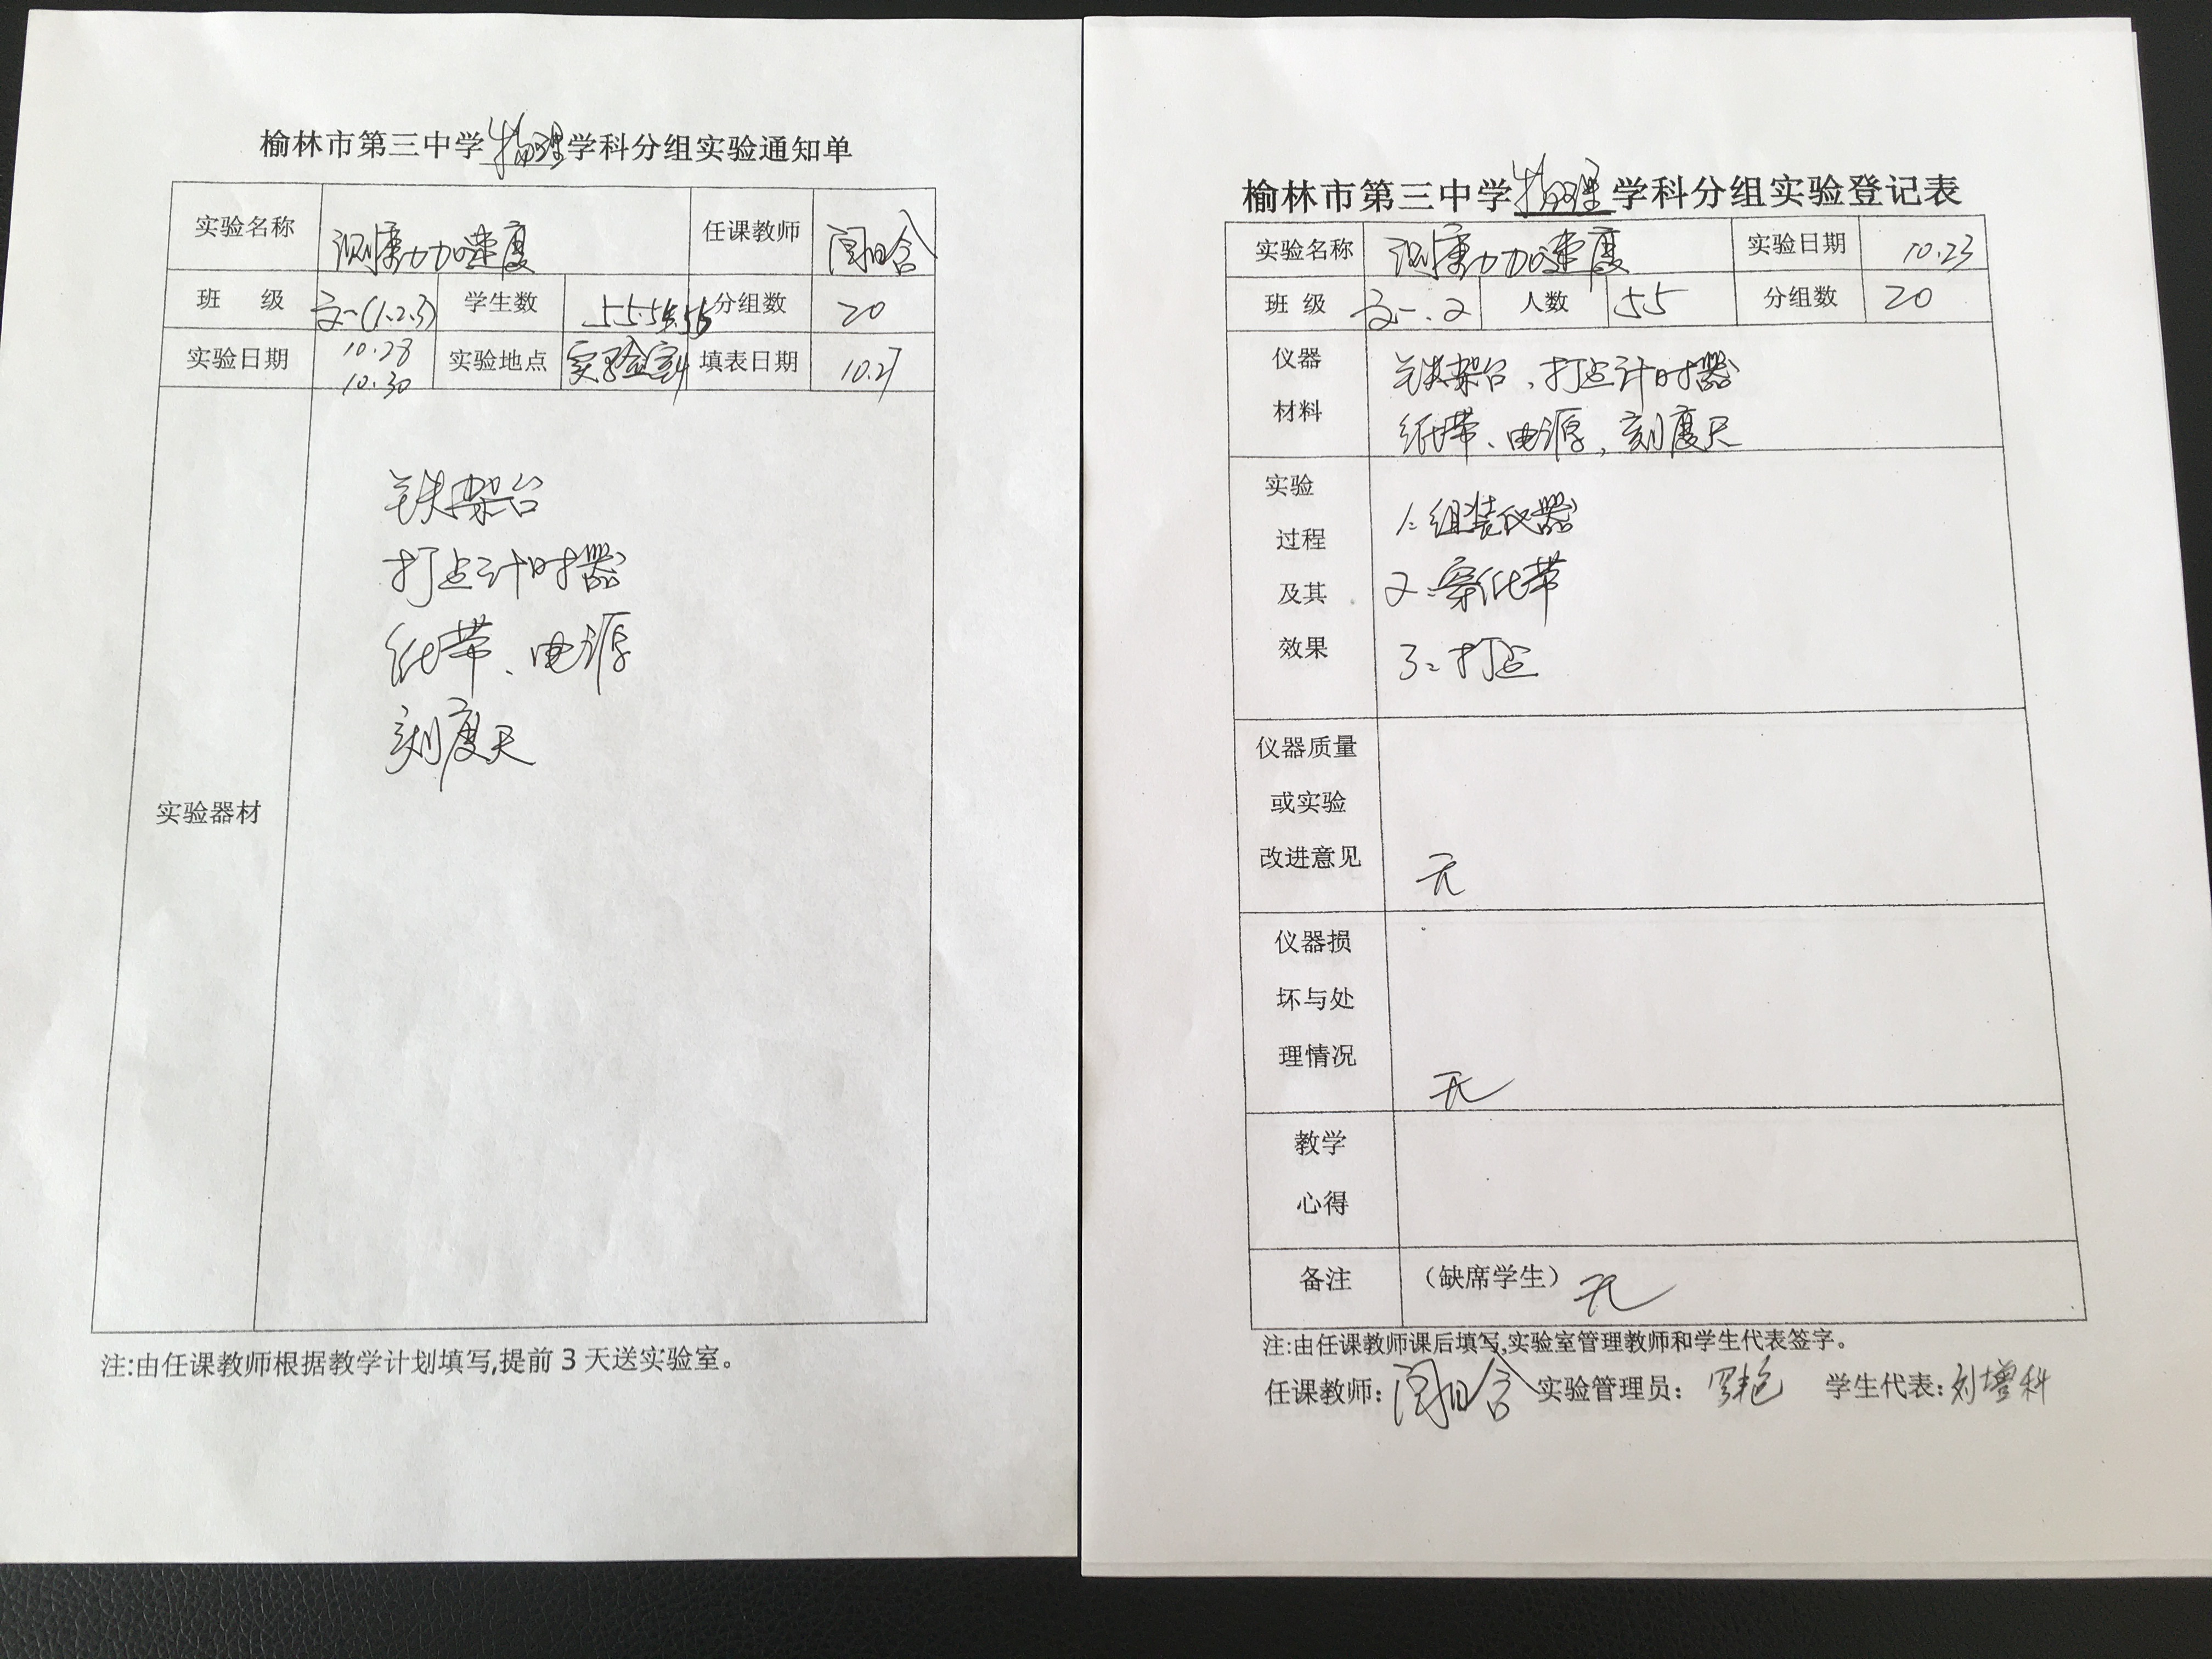 榆林市第三中学物理学科分组实验通知单
实验名称 测重力加速度 任课教师
班 级 高一(1.2.3) 学生数 55.54.56 分组数 20
实验日期 10.28 10.30 实验地点 实验室 填表日期 10.27
实验器材
铁架台
打点计时器
纸带、电源
刻度尺
注:由任课教师根据教学计划填写,提前3天送实验室。
榆林市第三中学物理学科分组实验登记表
实验名称 测重力加速度 实验日期 10.23
班 级 高一.2 人数 55 分组数 20
仪器材料 铁架台、打点计时器
纸带、电源,刻度尺
实验过程及其效果
1、组装仪器
2、穿纸带
3、打点
仪器质量或实验改进意见 无
仪器损坏与处理情况 无
教学心得
备注 (缺席学生) 无
注:由任课教师课后填写,实验室管理教师和学生代表签字。
任课教师: 实验管理员: 罗艳 学生代表:刘增科